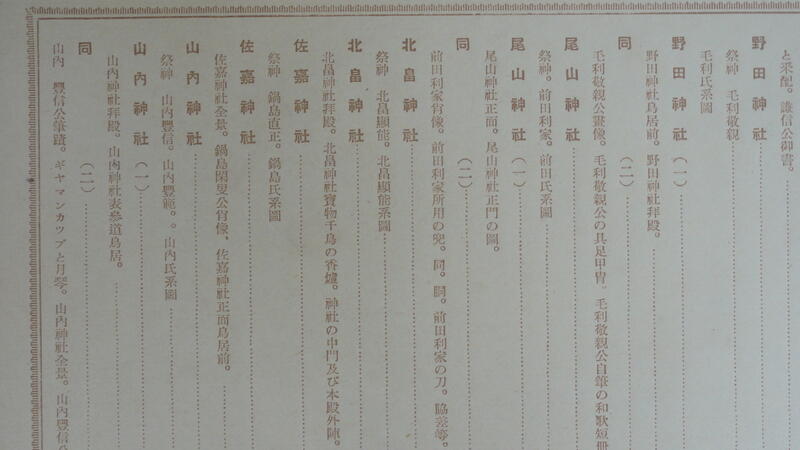 と采配。謙信公御書。
野田神社
祭神　毛利敬親
毛利氏系圖
野田神社（一）
野田神社鳥居前。野田神社拜殿。
同（二）
毛利敬親公靈像。毛利敬親公の具足甲冑。毛利敬親公自筆の和歌短册
尾山神社
祭神。前田利家。前田氏系圖
尾山神社（一）
尾山神社正面。尾山神社正門の圖。
同（二）
前田利家肖像。前田利家所用の兜。同。胴。前田利家の刀。脇差等。
北畠神社
祭神　北畠顯能。北畠顯能系圖
北畠神社
北畠神社拜殿。北畠神社寶物千鳥の香爐。神社の中門及び本殿外陣。
佐嘉神社
祭神　鍋島直正。鍋島氏系圖
佐嘉神社
佐嘉神社全景。鍋島閑叟公肖像、佐嘉神社正面鳥居前。
山內神社
祭神　山內豐信。山內豐範。。山內氏系圖
山內神社（一）
山內神社拜殿。山內神社表參道鳥居。
同（二）
山內　豐信公筆蹟。ギヤマンカツプと月琴。山內神社全景。山內豐信